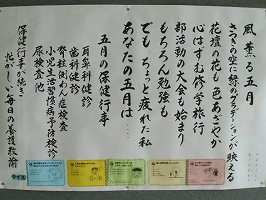 風薫る五月
さつきの空に緑のグラデーションが映える
花壇の花も色あざやか
心はずむ修学旅行
部活動の大会も始まり
もちろん勉強も
でもちょっと疲れた私
あなたの五月は
五月の保健行事
耳鼻科健診
歯科健診
脊柱側わん症検査
小児生活習慣病予防検診
尿検査他
保健行事が続き
忙がしい毎日の養護教諭